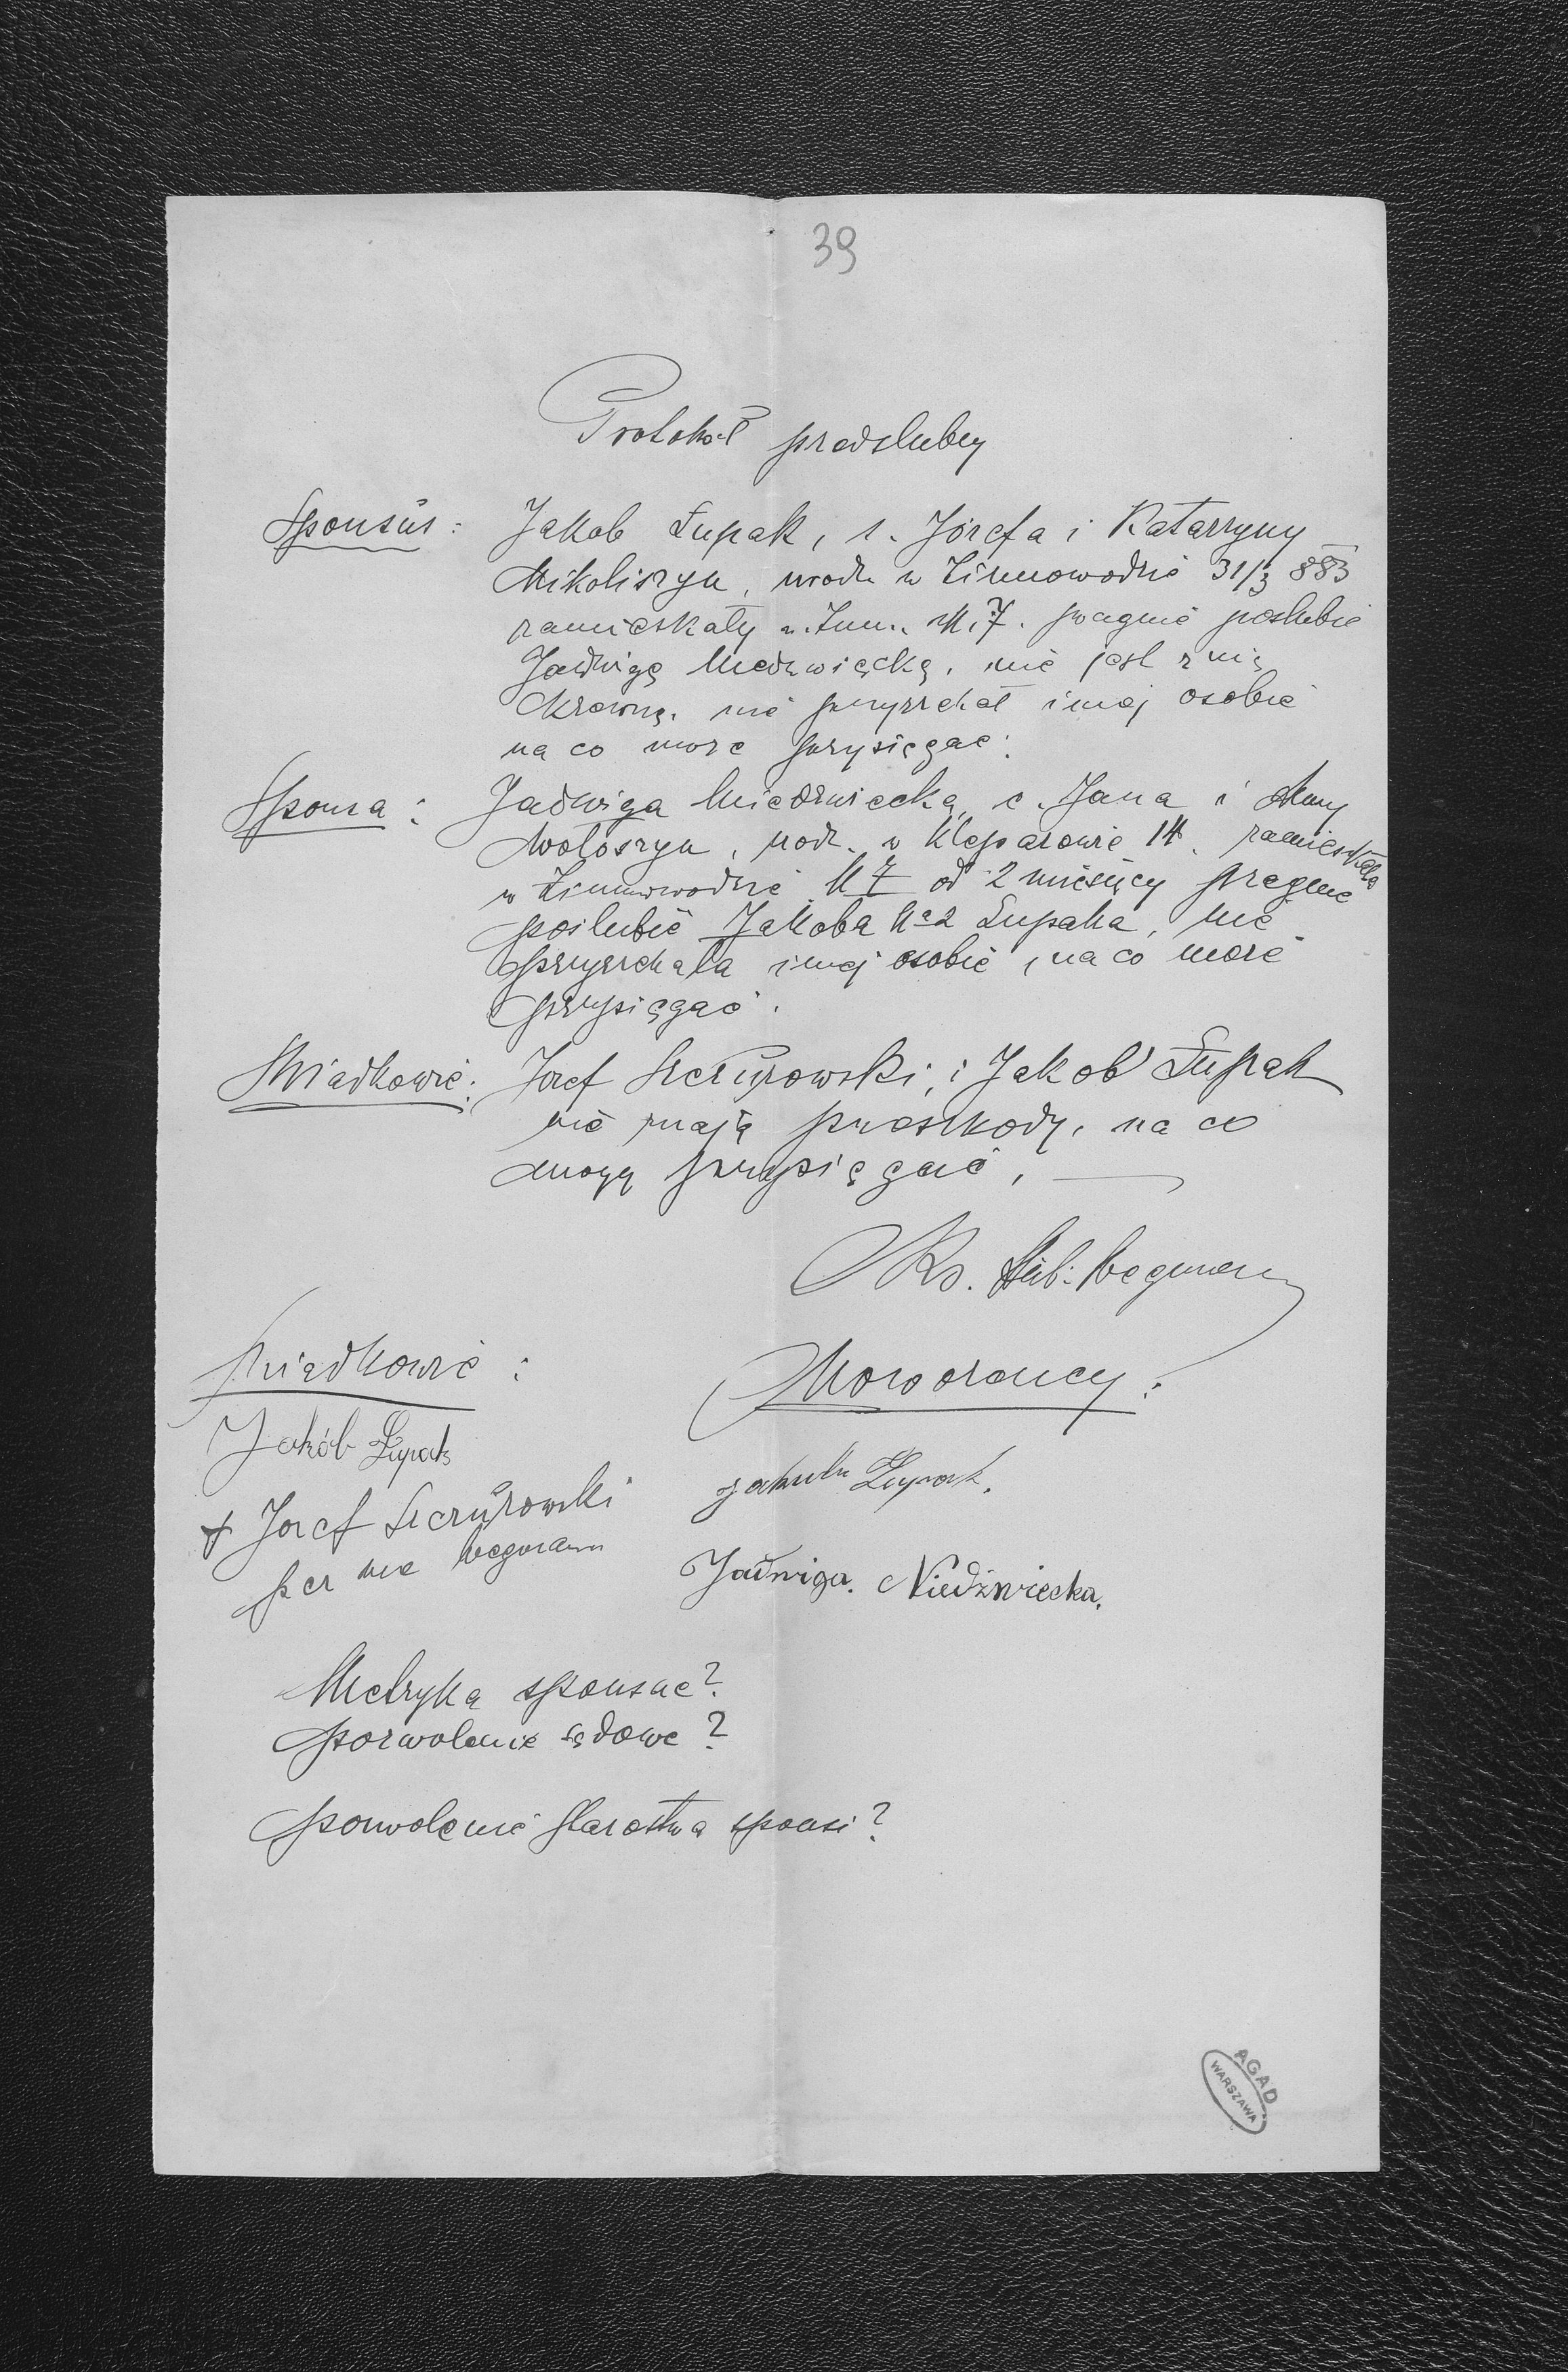 39
Protokół predslubny
Sponsus: Jakob Łupak, s. Józefa i Katarzyny
Mikoliszyn, urodz. w Zimnowodzie 31/3 883
zamieskały w Zimn. N. 7. pragnie poslubić
Jadwigę Niedzwiecką, nie jest z nią
krewny, nie przyrzekał innej osobie
na co może przysięgać.
Sponsa: Jadwiga Niedzwiecka, c. Jana i Anny
Wołoszyn, urodz. w Kleparowie 14. zamieskała
w Zimnowodzie N 7 od 2 miesięcy pragnie
poslubić Jakoba Łupaka, nie
przyrzekała innej osobie, na co może
przysięgać.
Swiadkowie: Jozef Szczurowski, i Jakob Łupak
nie znają preszkody, na co
mogą przysięgać,
Ks. Wegmann
Swiadkowie:
Nowożency:
Jakób Łupak
Jakub Łupak.
+ Jozef Szczurowski
per me Wegmann
Jadwiga. Niedźwiecka.
Metryka sponsae?
pozwolenie sądowe?
pozwolenie starostwa sponsi?
AGAD
WARSZAWA